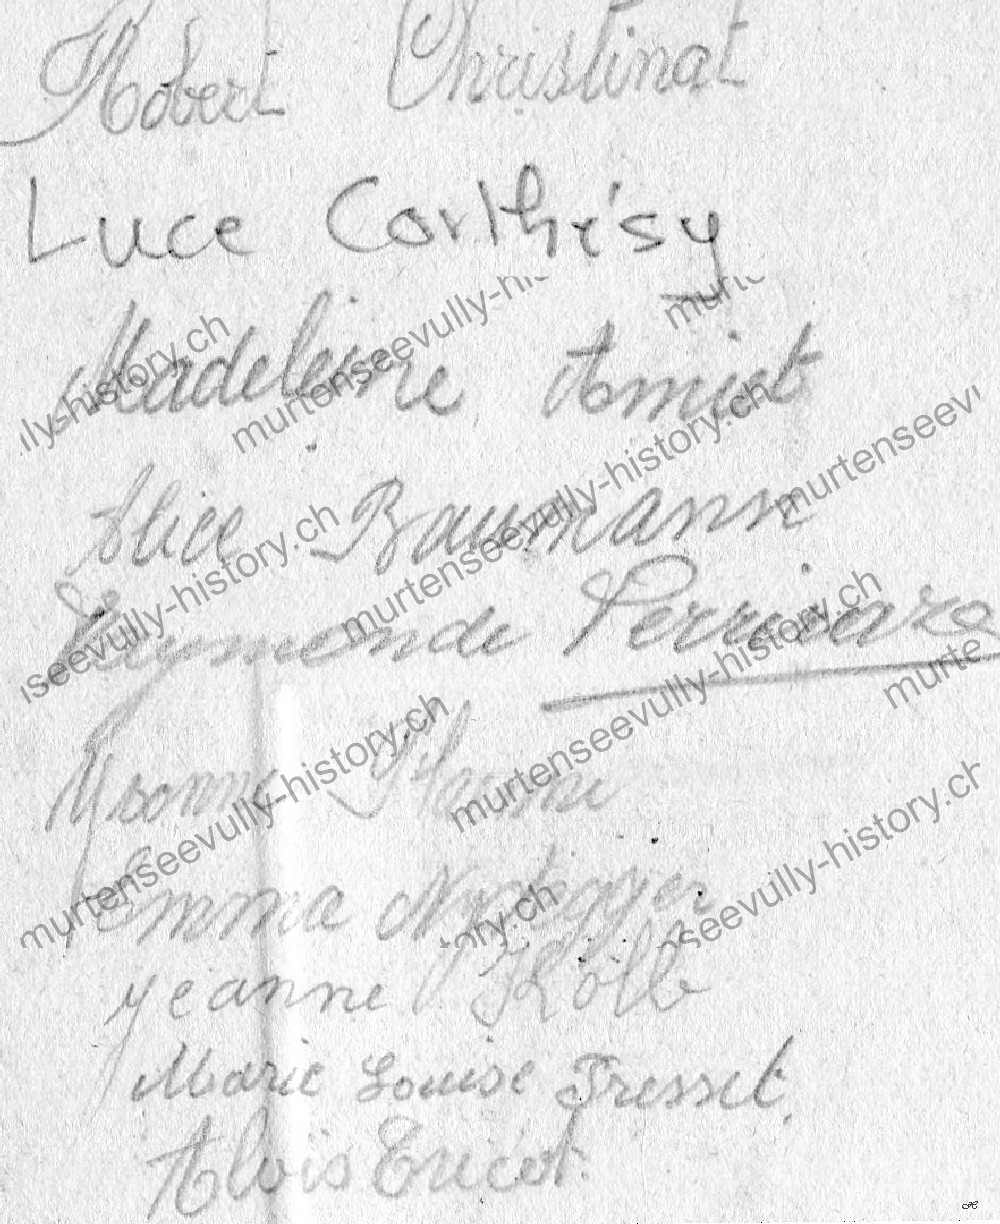 Robert Christinat
Luce Corthésy
Madeleine Amiet
Alice Baumann
Raymonde Perrisare
Yvonne
Emma
Jeanne Kolb
Marie Louise Pressset
Aloïs
murtenseevully-history.ch